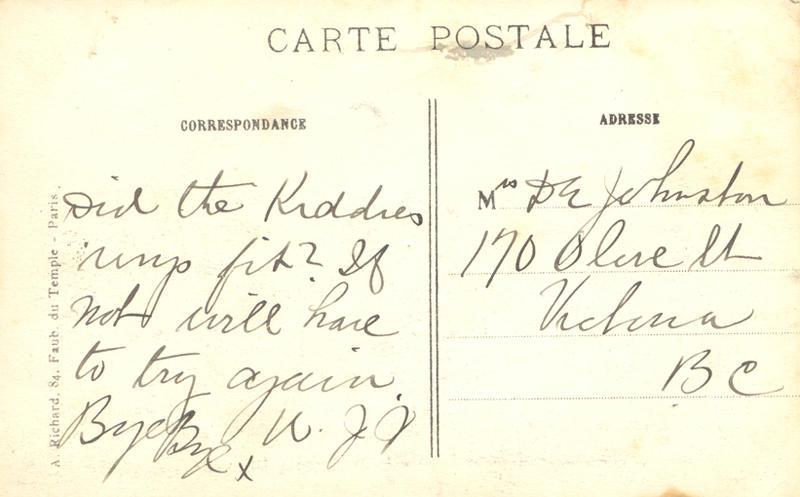 CARTE POSTALE
CORRESPONDANCE
Did the Kiddies
rings fit? If
not will have
to try again.
Bye Bye x W. J. J
ADRESSE
Mrs D E Johnston
170 Olive St
Victoria
B C
A. Richard, 84, Faub. du Temple - Paris.